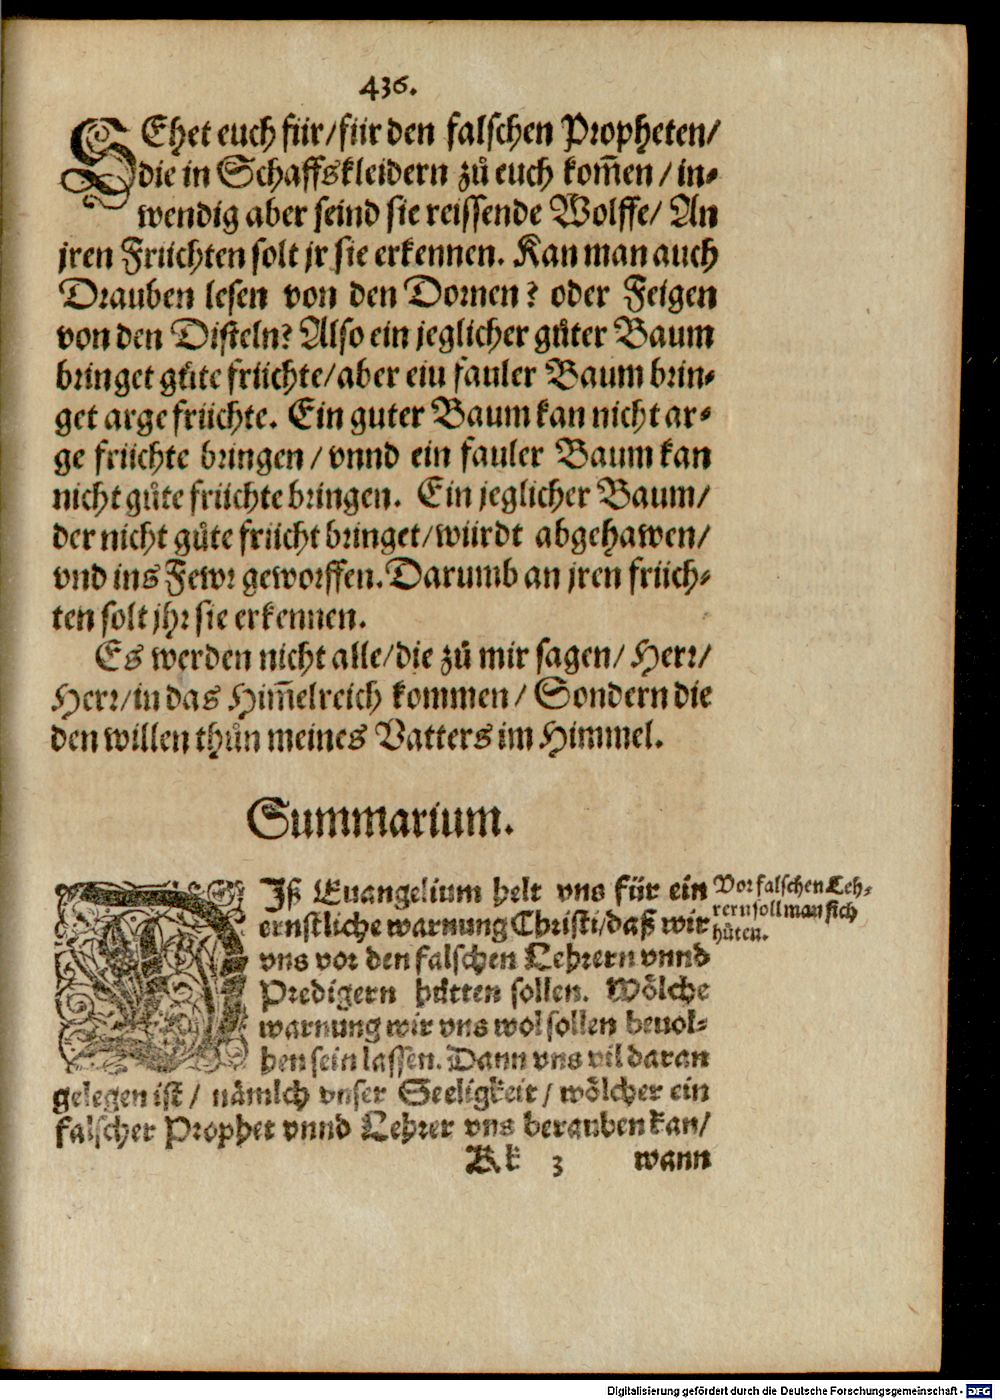 436.
SEhet euch für/für den falschen Propheten/
die in Schaffskleidern zů euch kom̃en / in⸗
wendig aber seind sie reissende Wolffe/ An
jren Früchten solt jr sie erkennen. Kan man auch
Drauben lesen von den Dornen? oder Feigen
von den Disteln? Also ein jeglicher gůter Baum
bringet gůte früchte/aber eiu fauler Baum brin⸗
get arge früchte. Ein guter Baum kan nicht ar⸗
ge früchte bringen / vnnd ein fauler Baum kan
nicht gůte früchte bringen. Ein jeglicher Baum/
der nicht gůte frücht bringet/würdt abgehawen/
vnd ins Fewr geworffen. Darumb an jren früch⸗
ten solt jhr sie erkennen.
Es werden nicht alle/die zů mir sagen/ Herr/
Herr/in das Him̃elreich kommen / Sondern die
den willen thůn meines Vatters im Himmel.
Summarium.
DIß Euangelium helt vns für ein
ernstliche warnung Christi/daß wir
vns vor den falschen Lehrern vnnd
Predigern hütten sollen. Wölche
warnung wir vns wol sollen beuol⸗
hen sein lassen. Dann vns vil daran
gelegen ist / nämlch vnser Seeligkeit / wölcher ein
falscher Prophet vnnd Lehrer vns berauben kan/
Vor falschen Leh⸗
rern soll man sich
hüten.
Kk 3 wann
Digitalisierung gefördert durch die Deutsche Forschungsgemeinschaft - DFG